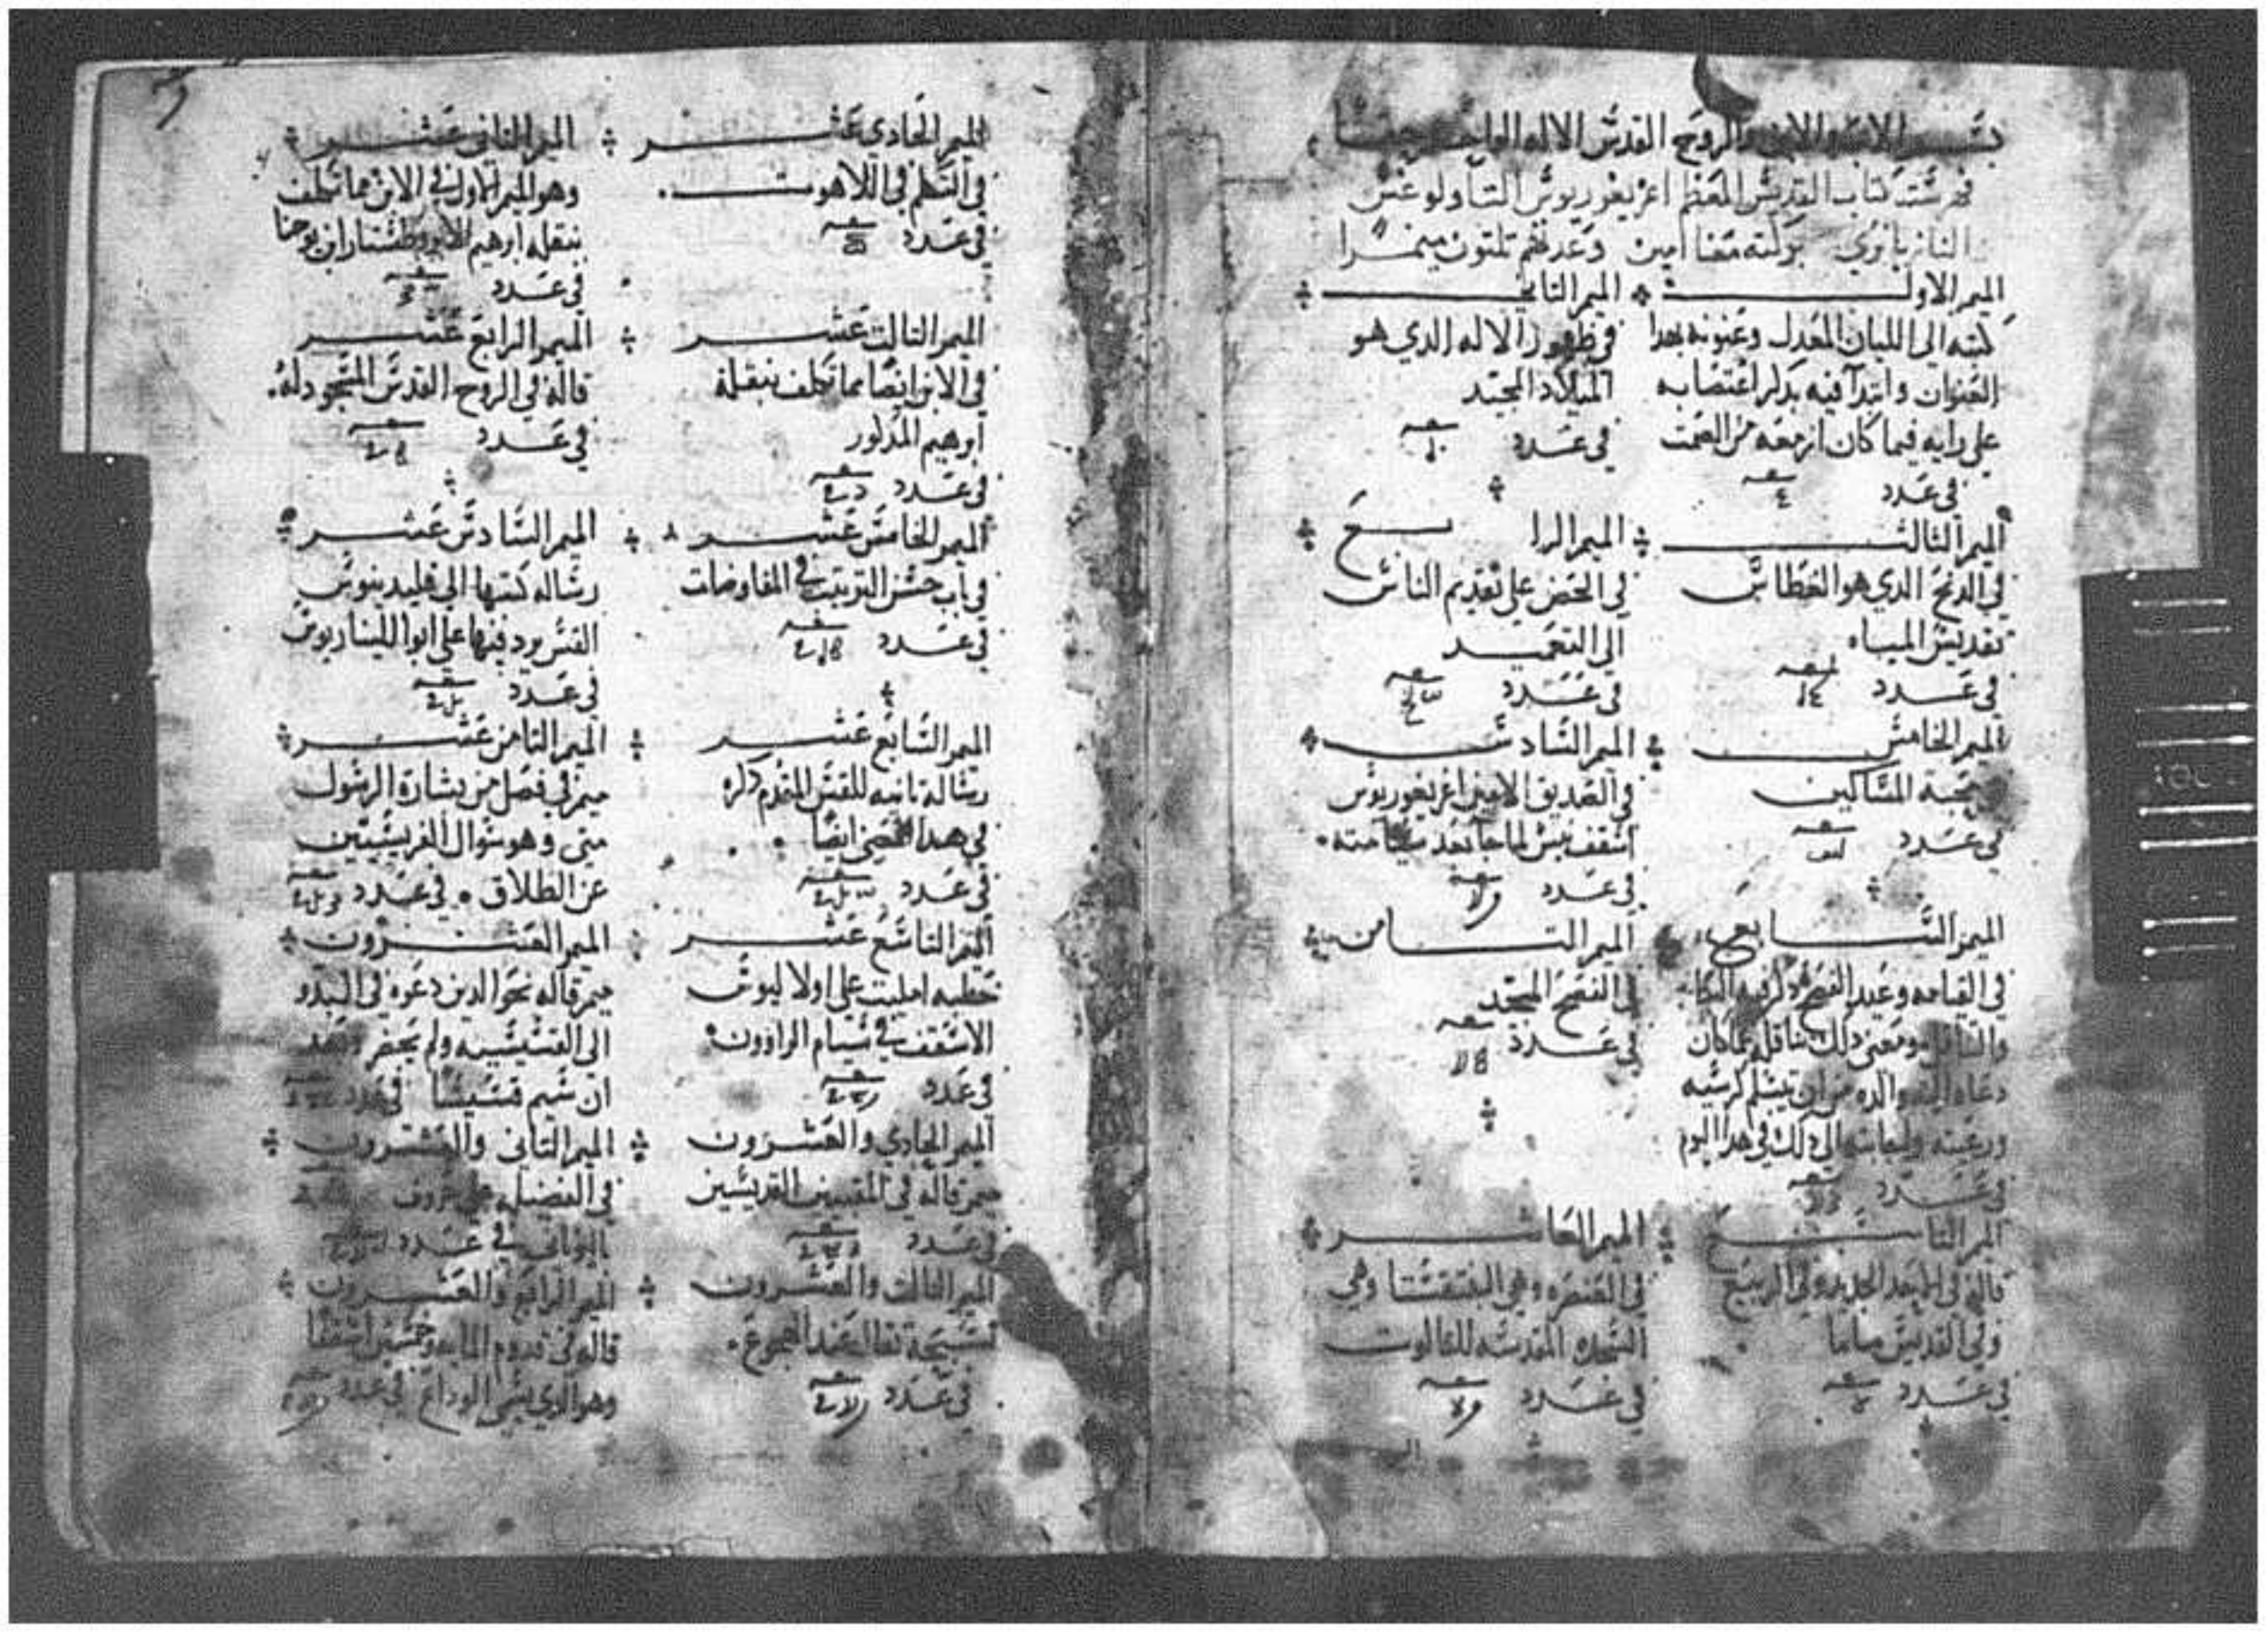 بسم الاب والابن والروح القدس الاله الواحد
فهرست كتاب القديس المعظم اغريغوريوس التاولوغس
النازيانزي بركته معنا امين وعدتهم تلتون ميمرا
الميمر الاول
كتبه الي اللبان المعدل وعنونه بهدا
العنوان وابتدا فيه بدكر اغتصابه
علي رايه فيما كان ازمعه من الصمت
في عدد
الميمر التاني
في ظهور الاله الدي هو
الميلاد المجيد
في عدد
الميمر التالت
في الدنح الدي هو الغطاس
تقديس المياه
في عدد
الميمر الرابع
في الحض علي تقديم الناس
الي التعميد
في عدد
الميمر الخامس
محبة المساكين
في عدد
الميمر السادس
في الصديق الامين اغريغوريوس
اسقف نيس لما جا بعد سيامته
في عدد
الميمر السابع
في القيامه وعيد الفصح دكر فيه
ومعني دلك كان
دعاه اليه والده من ان يتسلم كرسيه
ورعيته الي دلك في هدا اليوم
في عدد
الميمر التامن
في الفصح المجيد
في عدد
الميمر التاسع
قاله في الاحد الجديد وفي الربيع
وفي القديس ماما
في عدد
الميمر العاشر
في العنصره وهي البنتقستا وهي
السجده المقدسه للتالوت
في عدد
الميمر الحادي عشر
في التكلم في اللاهوت
في عدد
الميمر التاني عشر
وهو الميمر الاول في الابن مما تكلف
بنقله ابرهيم ابن يوحنا
في عدد
الميمر التالت عشر
في الابن ايضا مما تكلف بنقله
ابرهيم المدكور
في عدد
الميمر الرابع عشر
قاله في الروح القدس المسجود له
في عدد
الميمر الخامس عشر
في اب حسن الترتيب في المفاوضات
في عدد
الميمر السادس عشر
رساله كتبها الي قليدينوس
القس يرد فيها علي ابوالليناريوس
في عدد
الميمر السابع عشر
رسالة تانيه للقس المقدم دكره
في هدا المعني ايضا
في عدد
الميمر التامن عشر
ميمر في فصل من بشارة الرسول
متي وهو سوال الفريسيين
عن الطلاق في عدد
الميمر التاسع عشر
خطبه امليت علي اولاليوس
الاسقف في سيام الراوون
في عدد
الميمر العشرون
ميمر قاله نحو الدين دعوه في البدو
الي القسيسيه ولم يحضر وبعد
ان سيم قسيسا في عدد
الميمر الحادي والعشرون
ميمر قاله في المقبيين القديسين
في عدد
الميمر التاني والعشرون
في الفضيله علي حروف
باليوناني في عدد
الميمر التالت والعشرون
تسبيحة تقال عند الهجوع
في عدد
الميمر الرابع والعشرون
قاله في قدوم المايه وخمسين اسقفا
وهو الدي يسمي الوداع في عدد